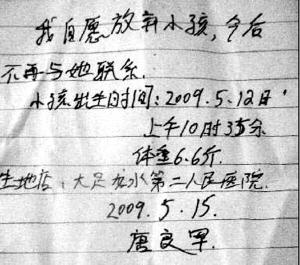 我自愿放弃小孩,今后
不再与她联系.
小孩出生日时间:2009.5.12日
上午10时35分
体重6.6斤.
生地店:大足龙水第二人民医院.
2009.5.15.
唐良军.